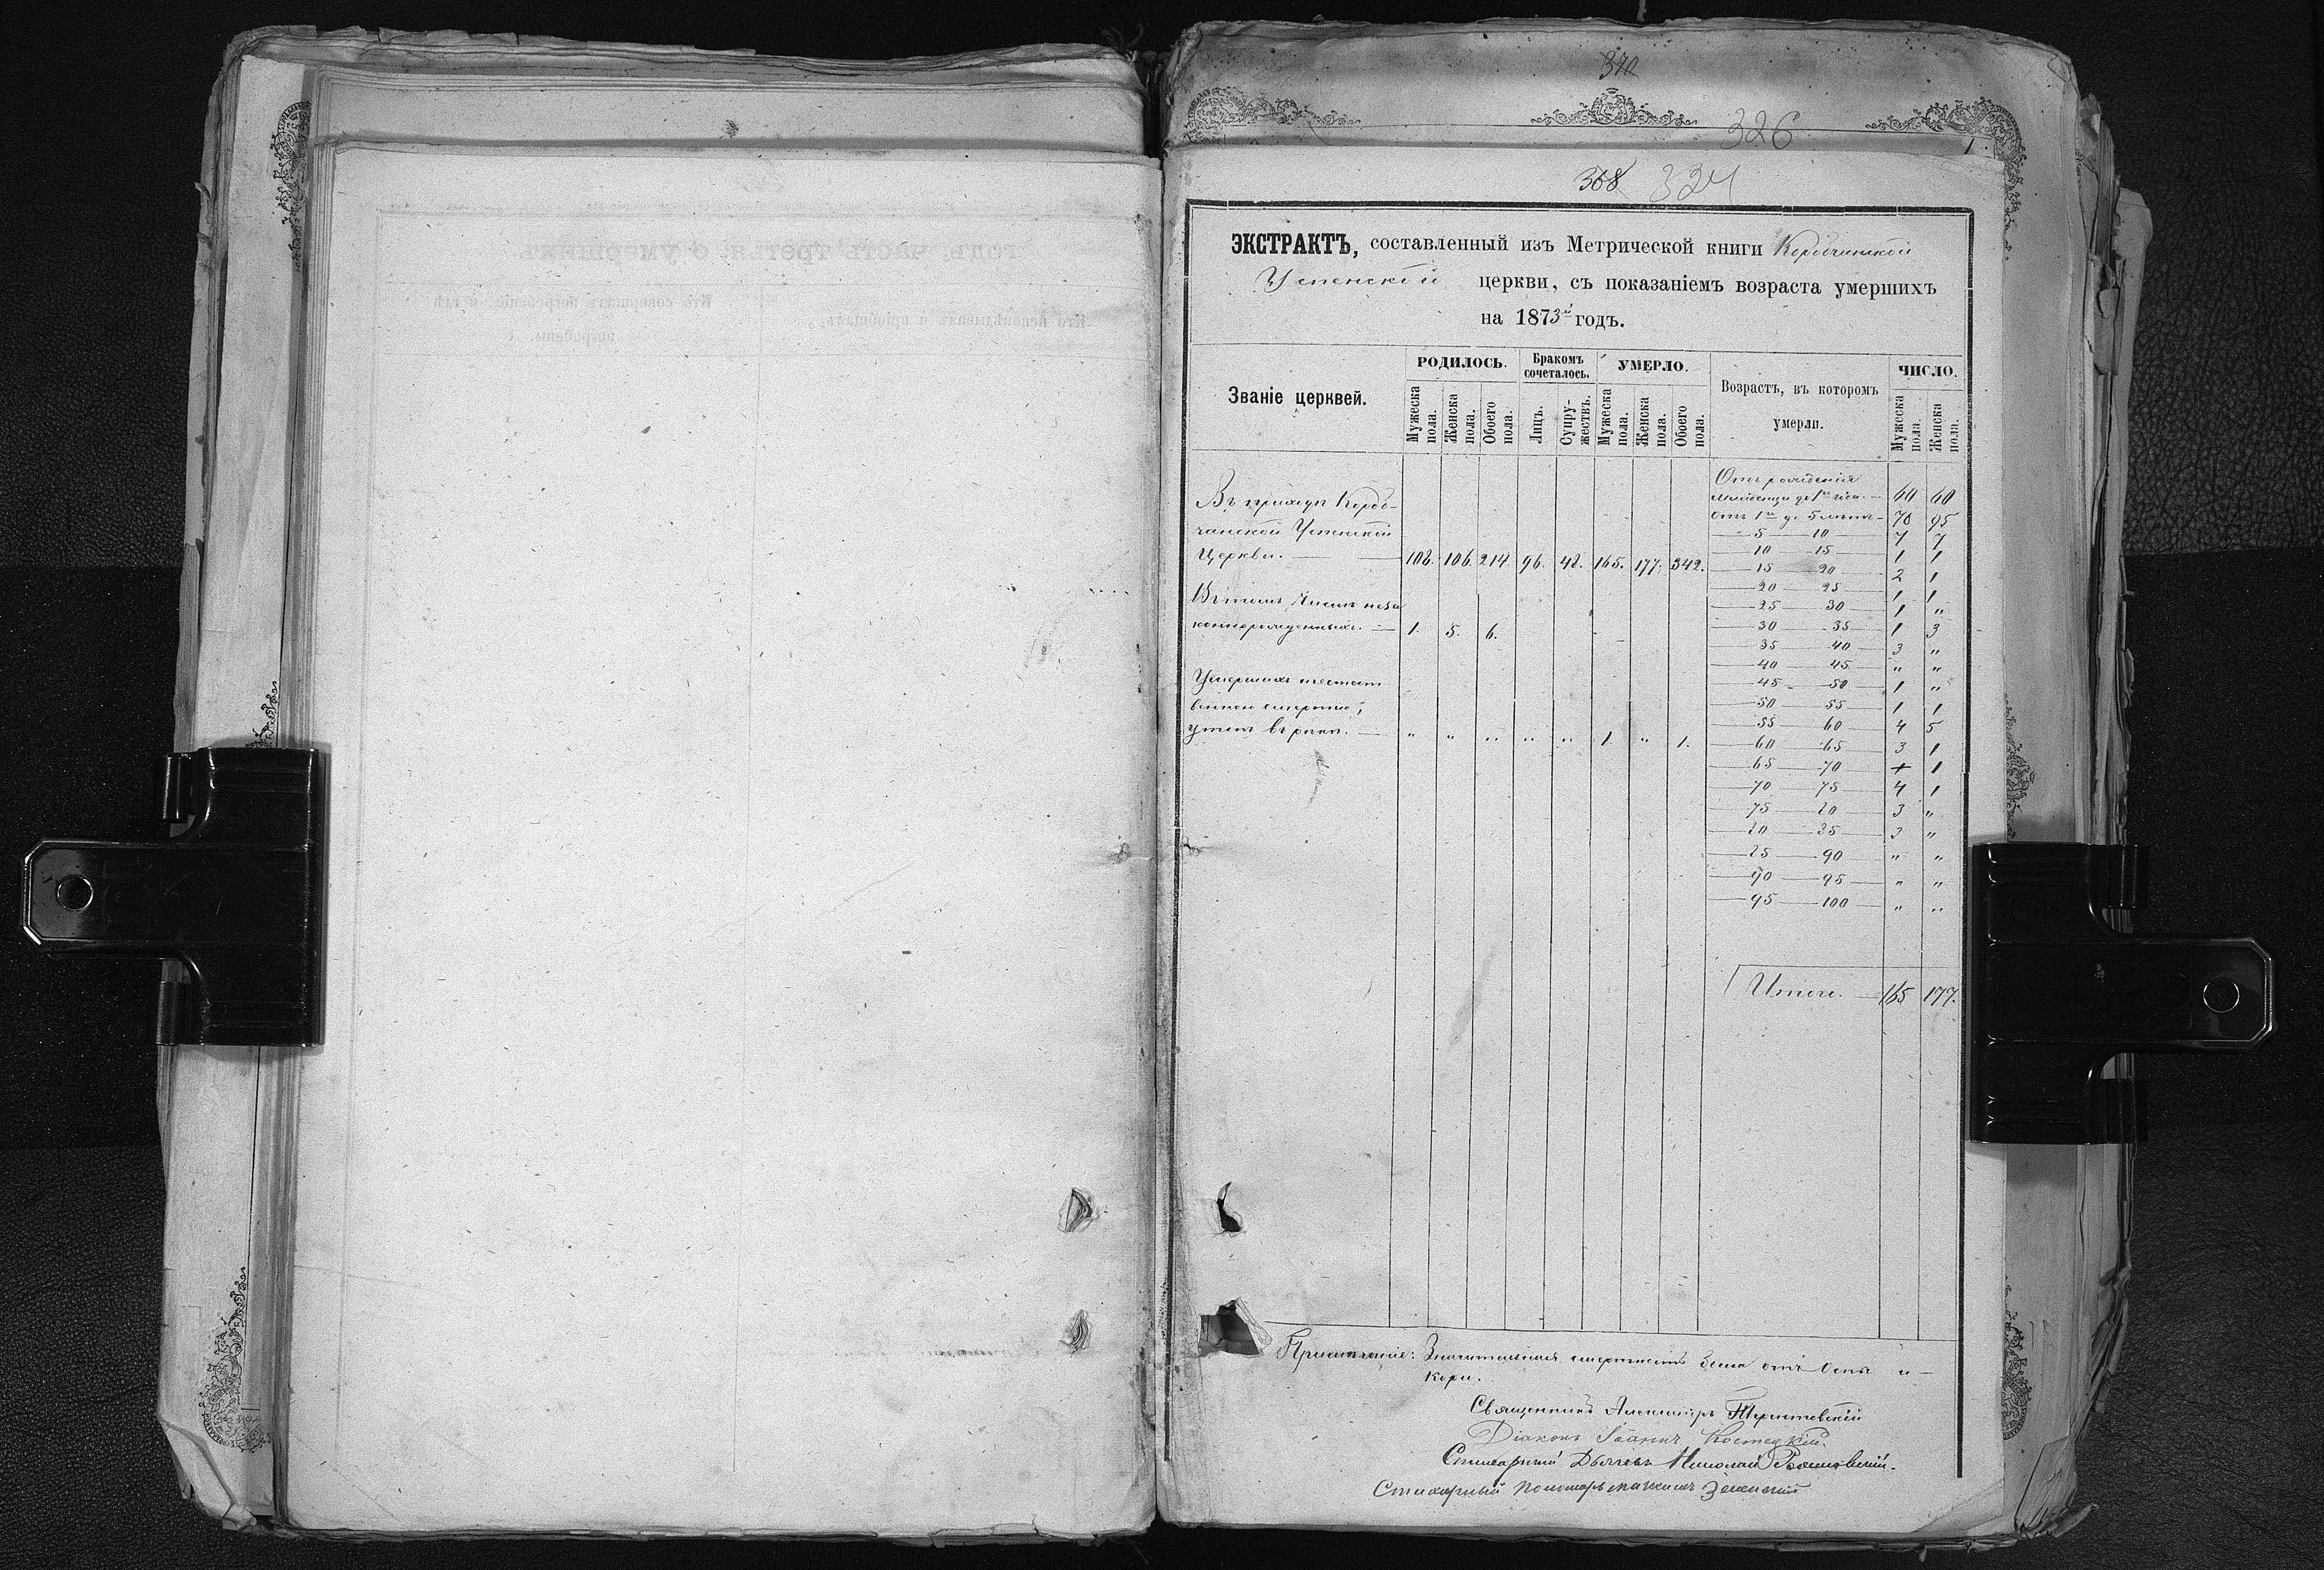 370
326
368 324
ЭКСТРАКТЪ, составленный изъ Метрической книги
Успенской церкви, съ показаніемъ возраста умершихъ
на 1873й годъ.
Званіе церквей.
РОДИЛОСЬ.
Мужеска пола.
Женска пола.
Обоего пола.
Бракомъ сочеталось.
Лицъ.
Супружествъ.
УМЕРЛО.
Мужеска пола.
Женска пола.
Обоего пола.
Возрастъ, въ которомъ
умерли.
ЧИСЛО.
Мужеска пола.
Женска пола.
Въ приходѣ Короб-
чанской Успенской
Церкви. — 108. 106. 214 96. 48. 165. 177. 342.
Въ томъ числѣ неза
коннорожденныхъ. — 1. 5. 6.
Умершихъ
смертію,
въ рѣкѣ. — " " " " " 1. " 1.
Отъ рожденія
до 1го года. — 60 60
Отъ 1го до 5 лѣтъ — 70 95
5 — 10 — 7 7
10 — 15 — 1 1
15 20 — 2 1
20 — 25 — 1 1
25 30 — 1 "
30 35 — 1 3
35 40 — 3 "
40 — 45 — " "
45 — 50 — 1 "
50 — 55 — 1 1
55 60 — 4 5
60 65 — 3 1
65 — 70 — + 1
70 75 — 4 1
75 — 80 — 3 "
80 — 85 — 3 "
85 — 90 — " "
90 — 95 — " "
95 — 100 — " "
Итого. — 165 177.
Примѣчаніе: Значительная смертность отъ Оспы и —
Кори.
Священникъ Александръ
Діаконъ Іоаннъ Костецкій.
Стихарный Дьячекъ Николай
Стихарный Пономарь